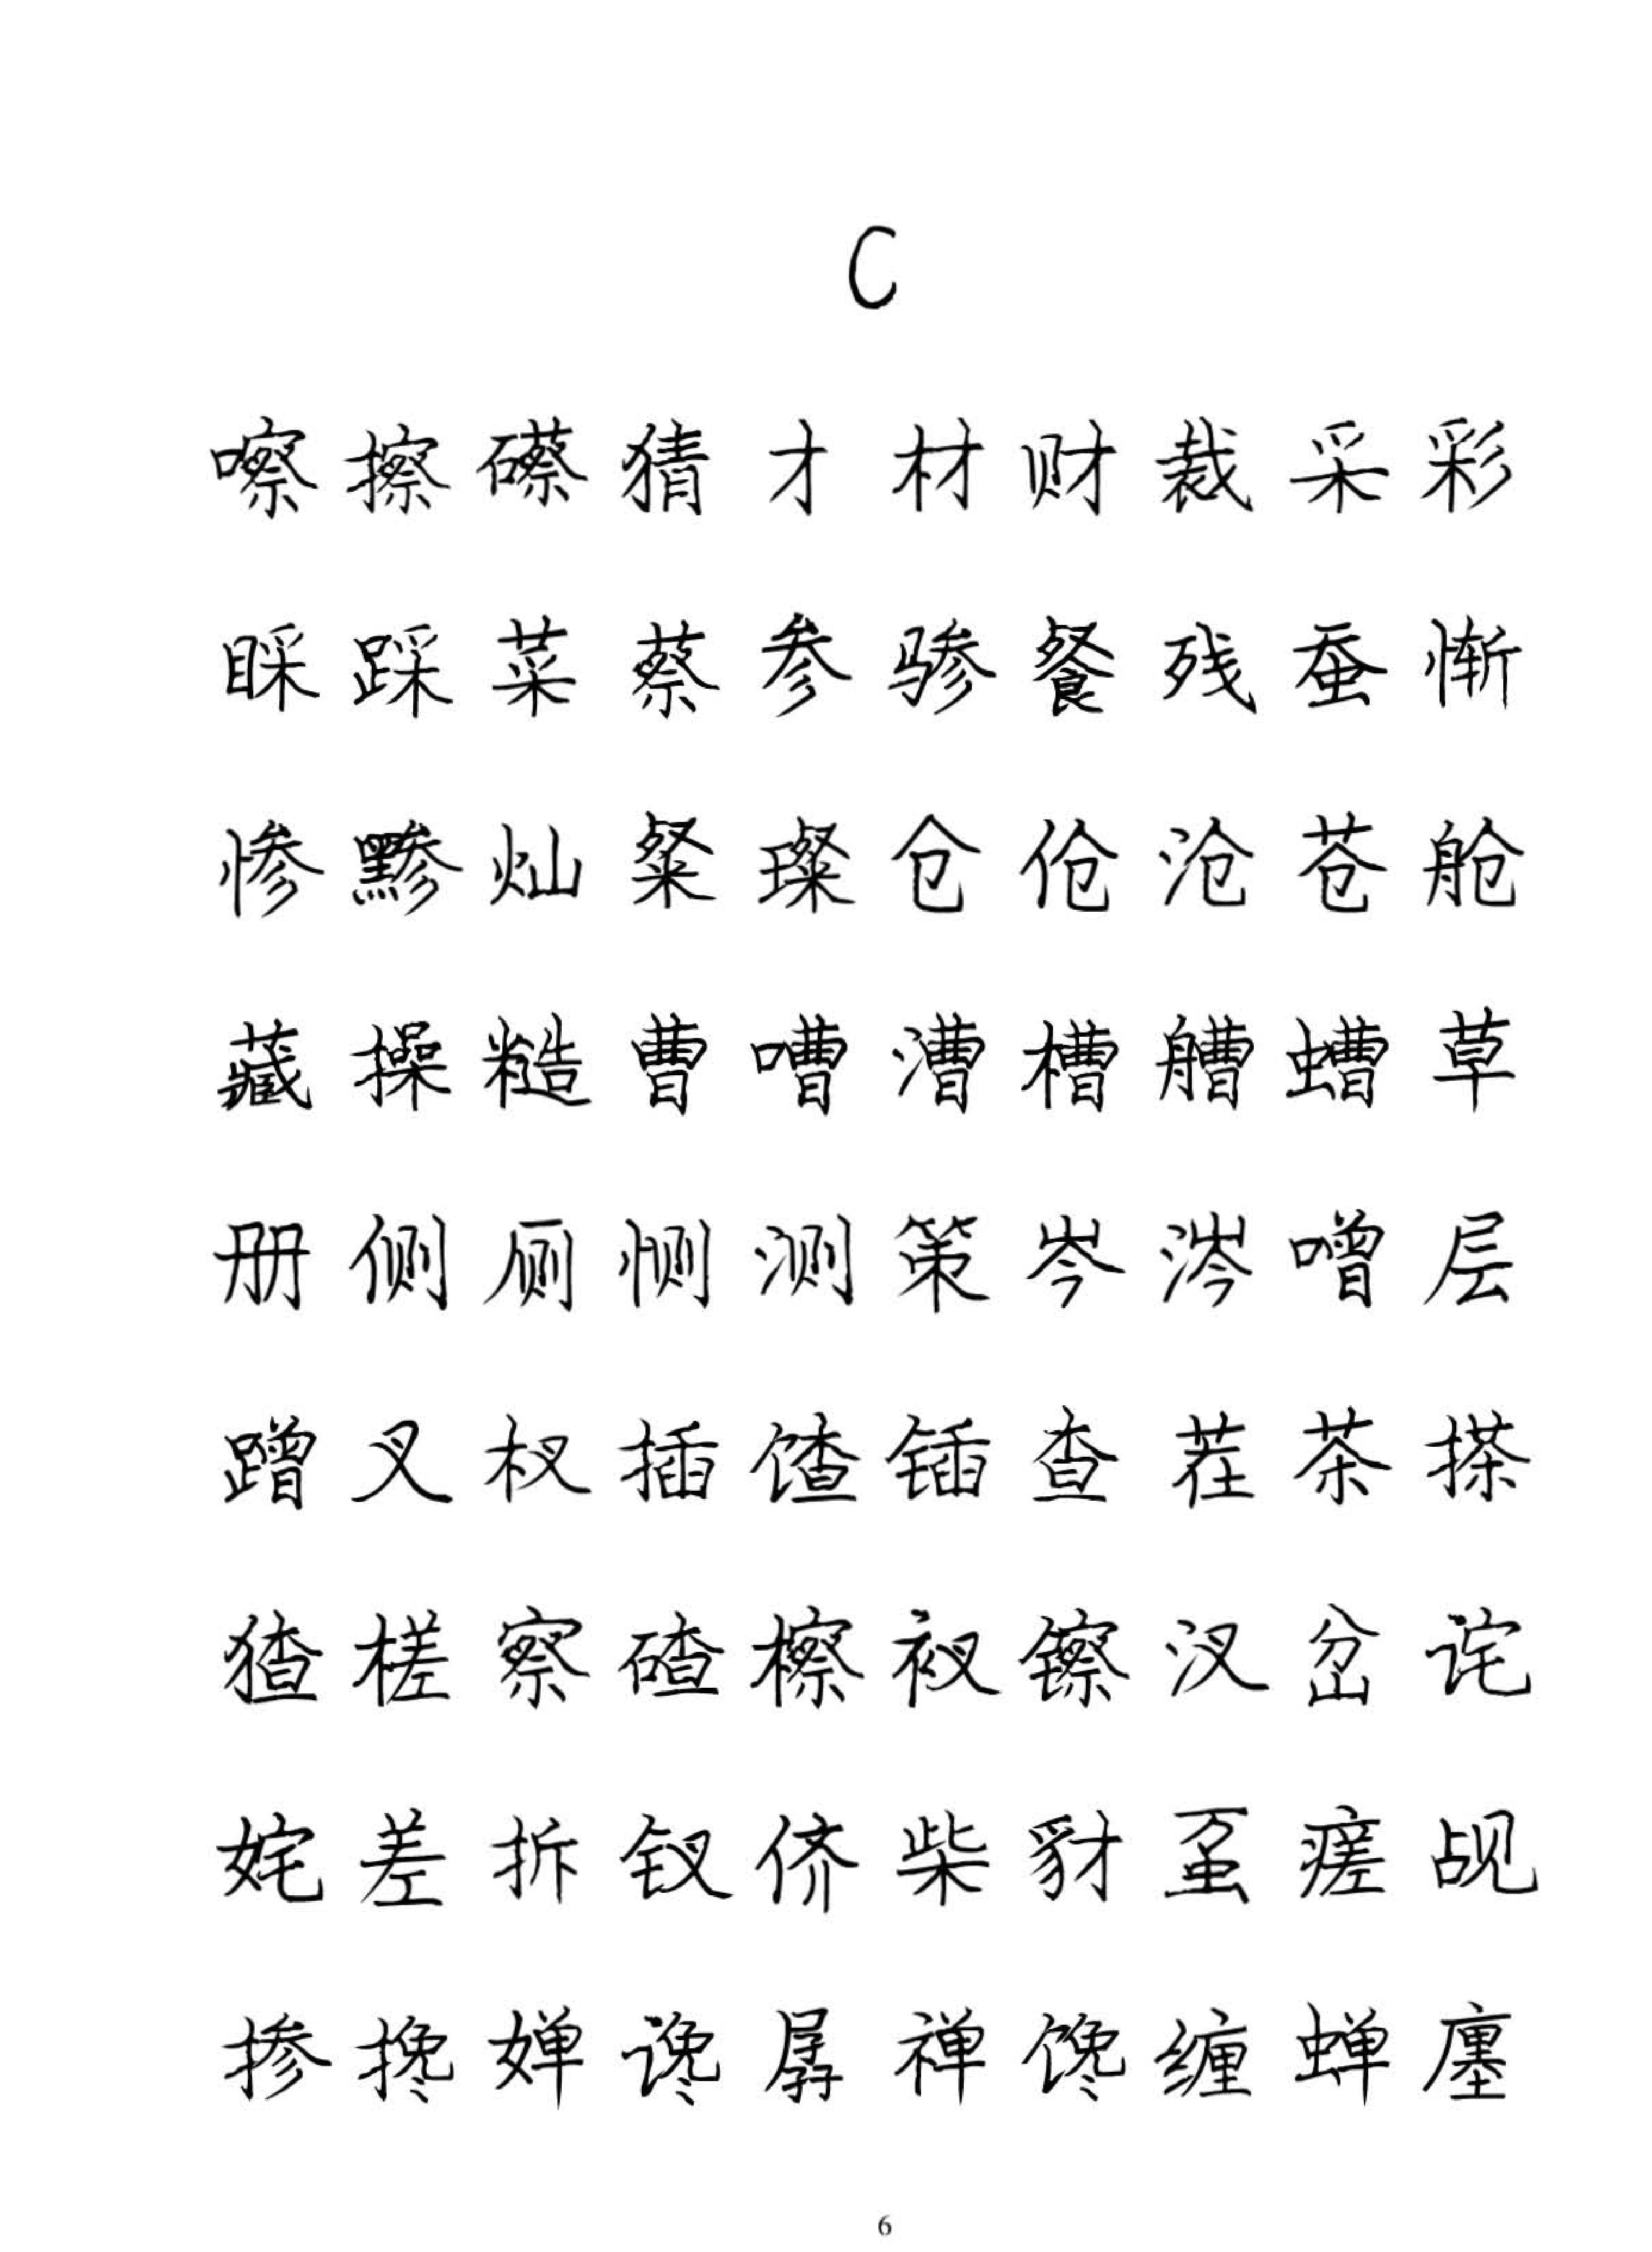 C
嚓 擦 礤 猜 才 材 财 裁 采 彩
睬 踩 菜 蔡 参 骖 餐 残 蚕 惭
惨 黪 灿 粲 璨 仓 伧 沧 苍 舱
藏 操 糙 曹 嘈 漕 槽 艚 螬 草
册 侧 厕 恻 测 策 岑 涔 噌 层
蹭 叉 杈 插 馇 锸 查 茬 茶 搽
猹 槎 察 碴 檫 衩 镲 汊 岔 诧
姹 差 拆 钗 侪 柴 豺 虿 瘥 觇
掺 搀 婵 谗 孱 禅 馋 缠 蝉 廛
6